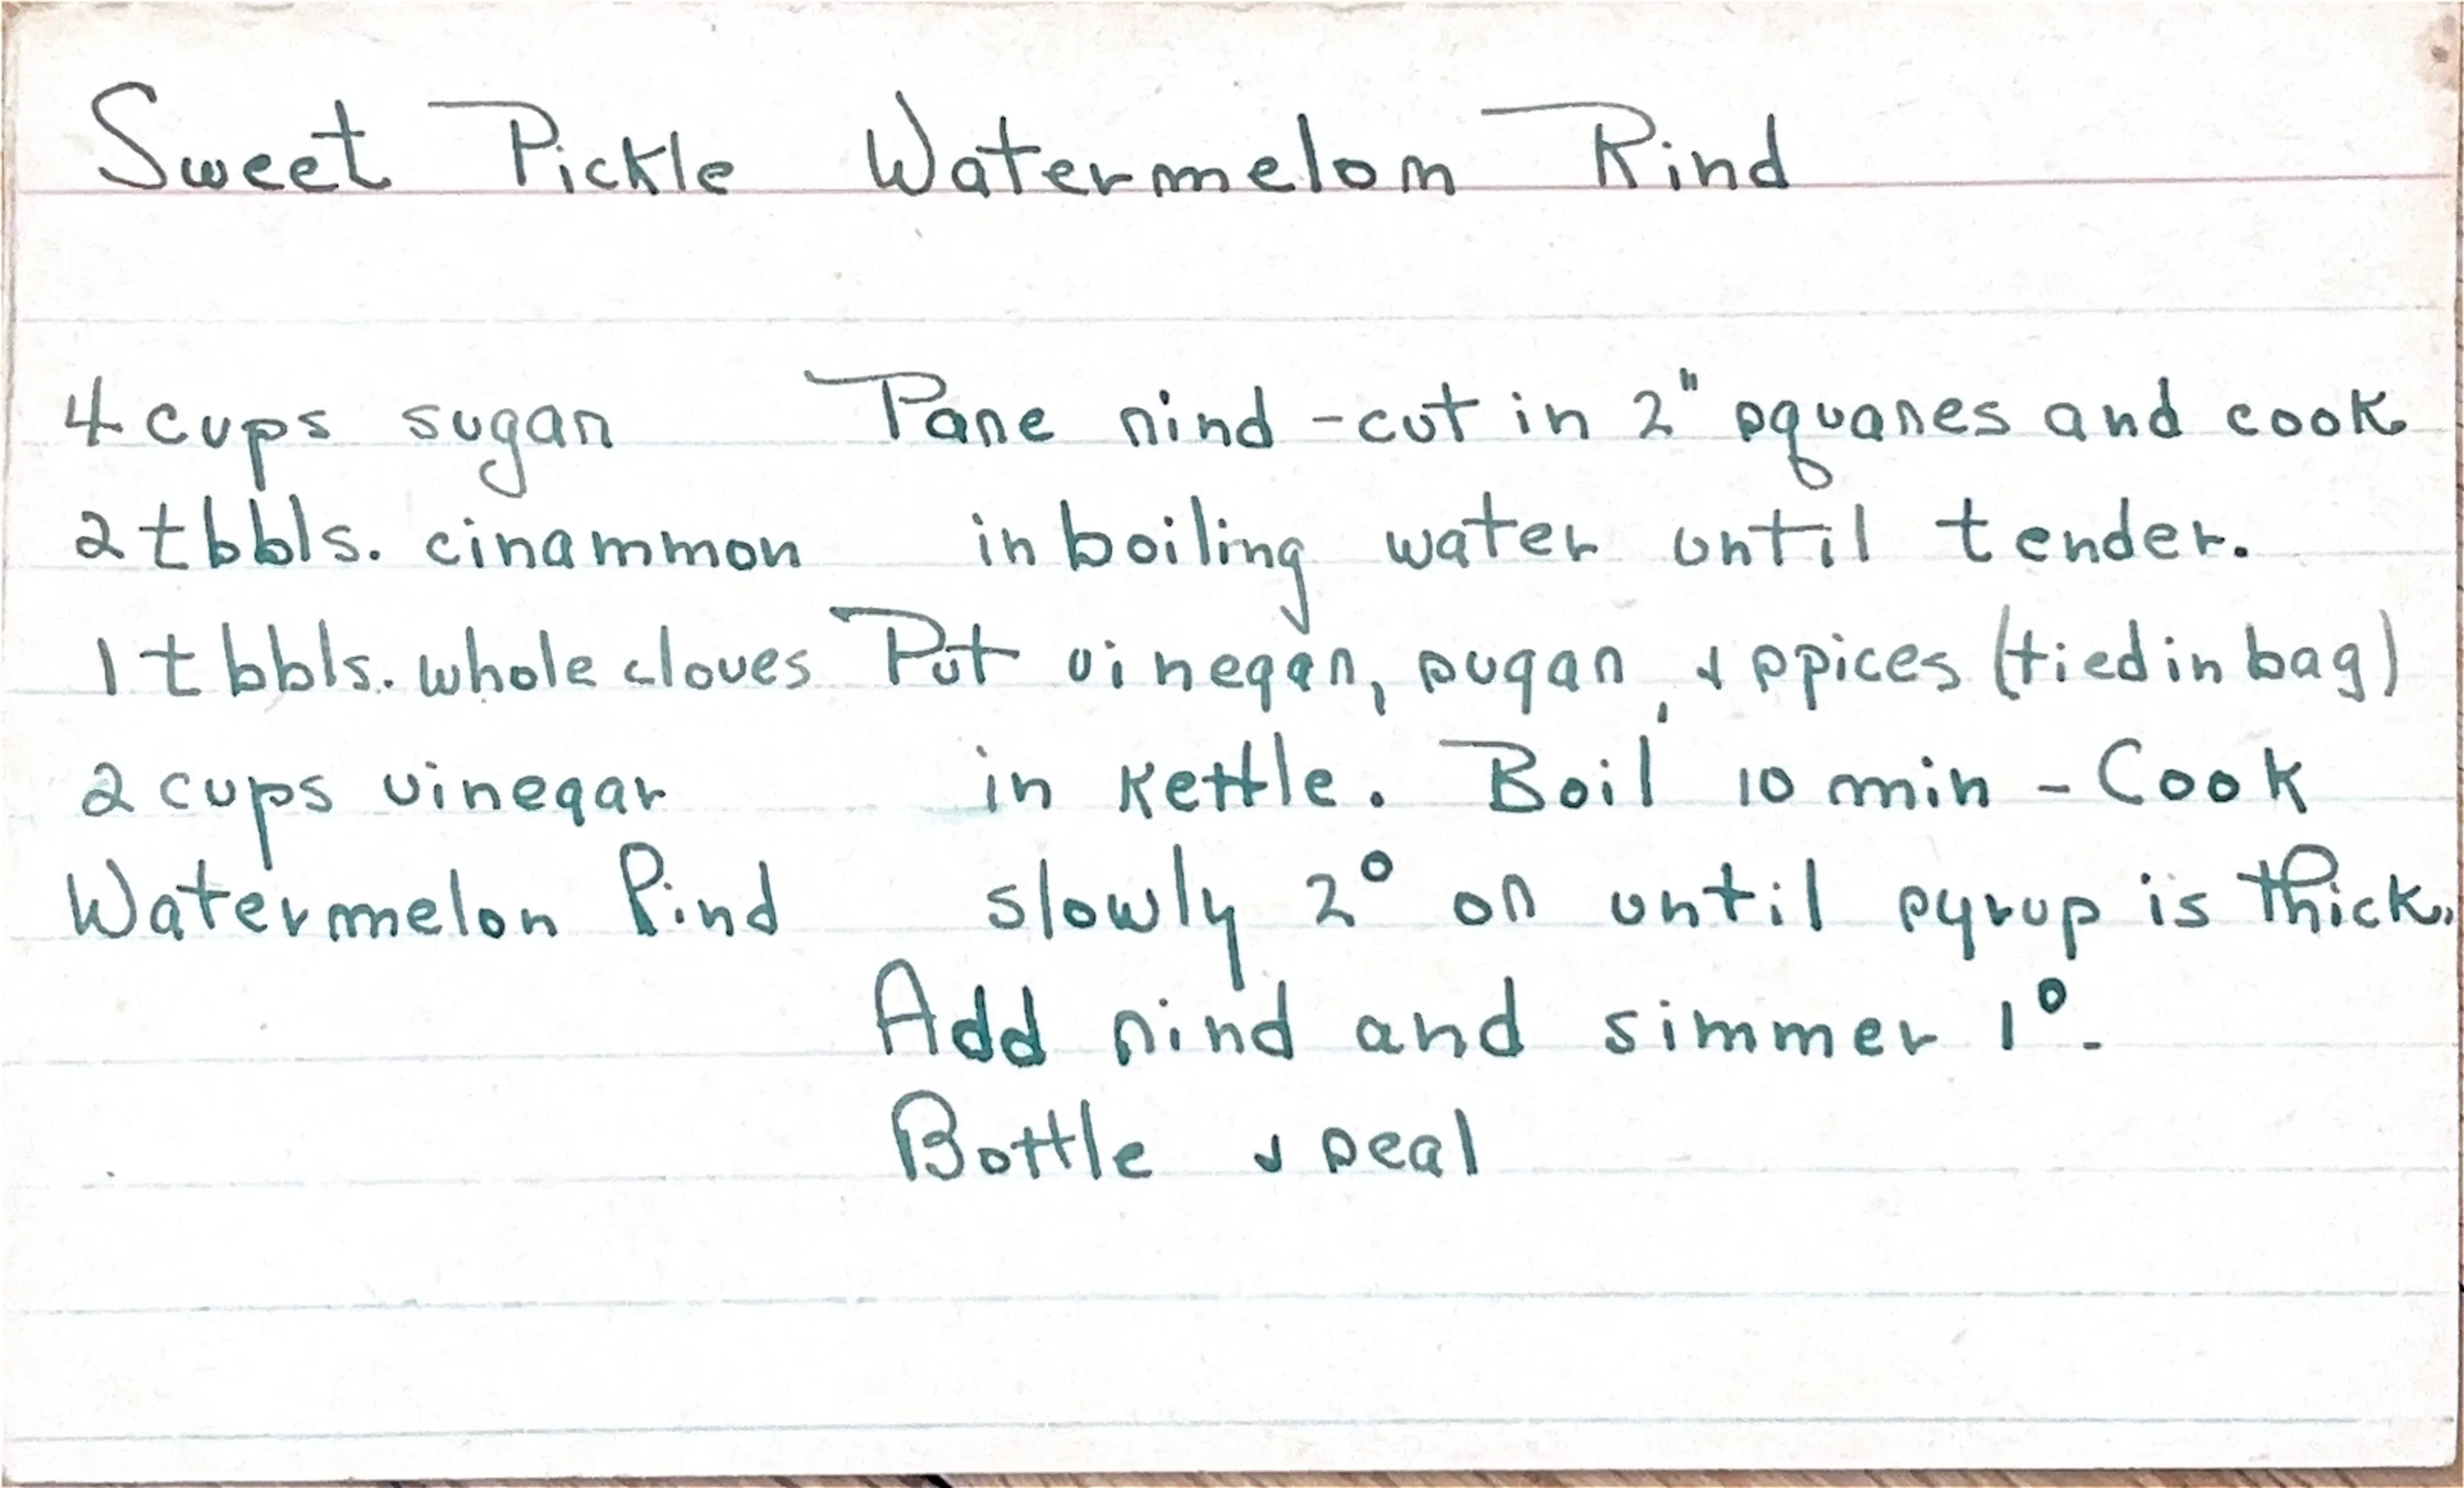 Sweet Pickle Watermelon Rind
4 cups sugar
2 tbbls. cinammon
1 tbbls. whole cloves
2 cups vinegar
Watermelon Rind
Pare rind - cut in 2" squares and cook
in boiling water until tender.
Put vinegar, sugar, & spices (tied in bag)
in kettle. Boil 10 min - Cook
slowly 2° or until syrup is thick.
Add rind and simmer 1°.
Bottle & seal